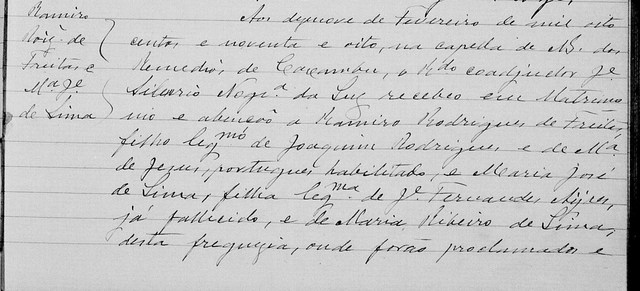 Ramiro
Roiz de
Freitas e
Ma. Je.
de Lima
Aos dezenove de Fevereiro de mil oito
centos e noventa e oito, na capella de N. S. dos
Remedios de Caxambu, o Rdo coadjuctor Je
Silverio Nogra da Luz recebeo em Matrimo
nio e abençoô a Ramiro Rodrigues de Freitas,
filho legmo de Joaquim Rodrigues e de Ma.
de Jezus, portugues habilitado, e Maria José
de Lima, filha legma. de Je. Fernandes
já fallecido, e de Maria Ribeiro de Lima,
desta freguezia, onde forão proclamados e